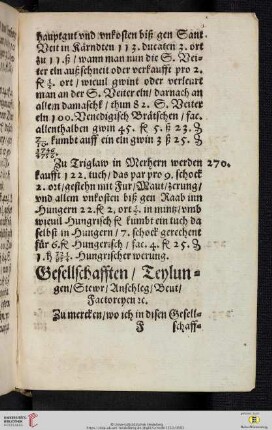 hauptgut vnd vnkosten biß gen Sant
Veit in Kärndten 113. ducaten 2. ort
zu 11.ß / wann man nun die S. Vei-
ter ein außschneit oder verkaufft pro 2.
ort / wieuil gwint oder verleurt
man an der S. Veiter eln / darnach an
allem damaschk / thun 82. S. Veiter
eln 100. Venedigisch Brätschen / fac.
allenthalben gwin 45. 5. ß 23.
kumbt auff ein eln gwin 3 ß 25.
Zu Triglaw in Merhern werden 270.
kaufft 122. tuch / das par pro 9. schock
2. ort / gestehn mit Fur / Maut / zerung /
vnd allem vnkosten biß gen Raab inn
Hungern 22. 2. ort in müntz / vmb
wieuil Hungerisch kumbt ein tuch da
selbst in Hungern / 7. schock gerechent
für 6. Hungerisch / fac. 4. 25.
1. Hungrischer werung.
Gesellschafften / Teylun-
gen / Stewr / Anschleg / Beut /
Factoreyen ꝛc.
Zu mercken / wo ich in disen Gesell-
F schaff-